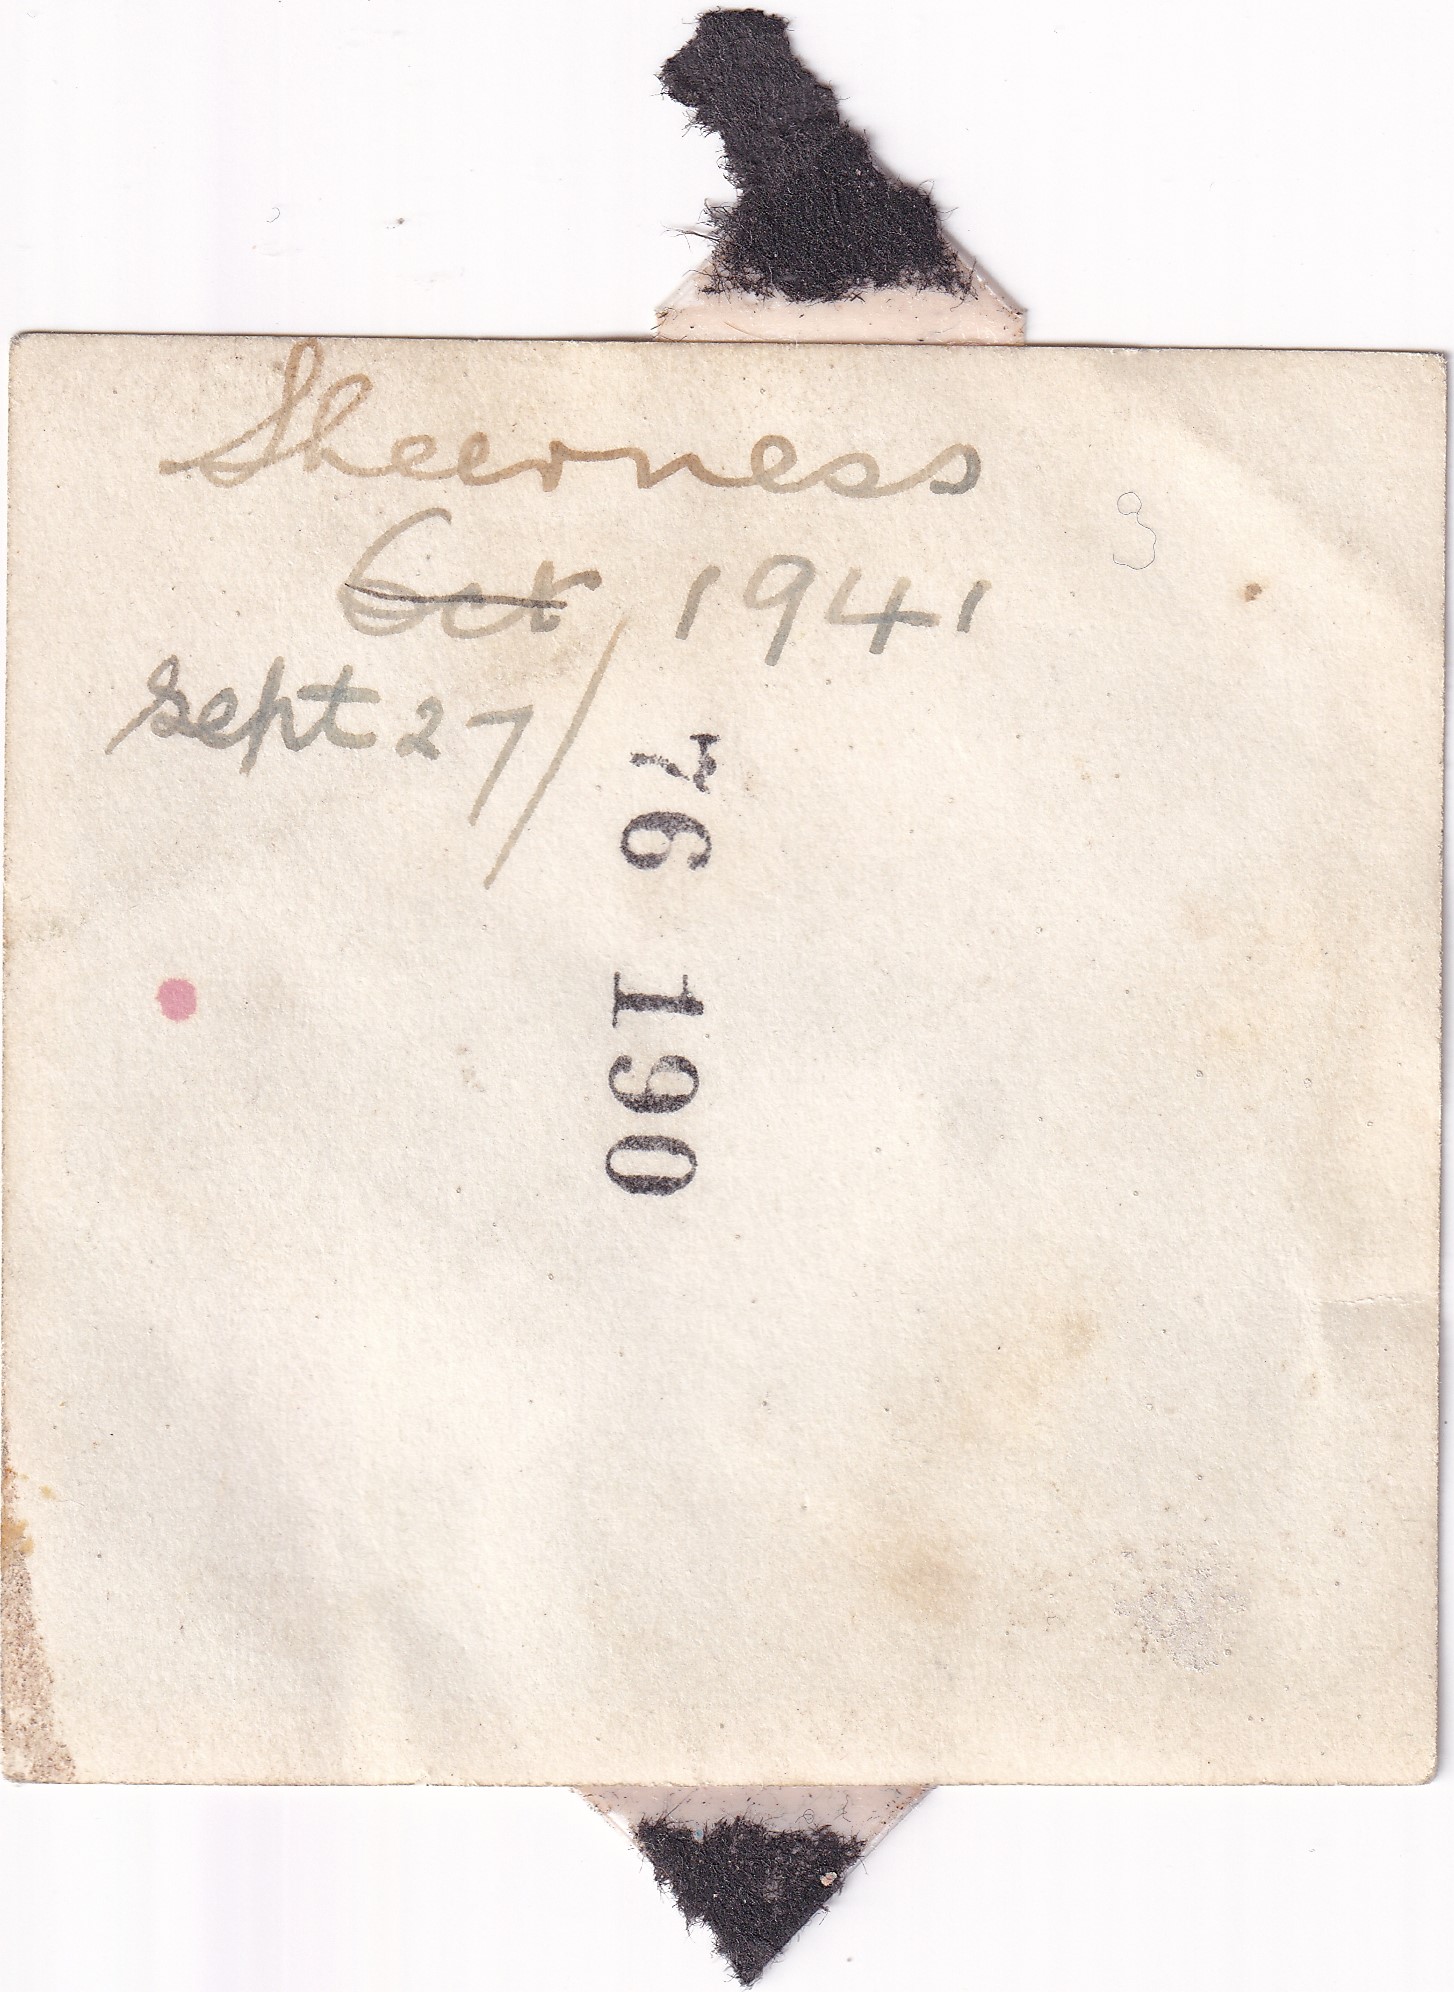 Sheerness
Oct 1941
Sept 27/
76 190